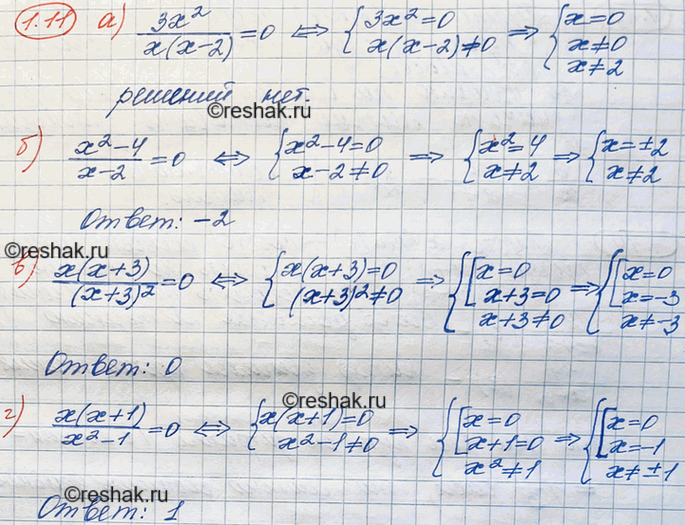 1.11 а) 3x²/x(x-2) = 0 ⟺ {3x² = 0, x(x-2) ≠ 0 ⟹ {x = 0, x ≠ 0, x ≠ 2
решений нет.
©reshak.ru
б) x²-4/x-2 = 0 ⟺ {x²-4 = 0, x-2 ≠ 0 ⟹ {x² = 4, x ≠ 2 ⟹ {x = ±2, x ≠ 2
Ответ: -2
©reshak.ru
в) x(x+3)/(x+3)² = 0 ⟺ {x(x+3) = 0, (x+3)² ≠ 0 ⟹ {[x = 0, x+3 = 0, x+3 ≠ 0 ⟹ {[x = 0, x = -3, x ≠ -3
Ответ: 0
©reshak.ru
г) x(x+1)/x²-1 = 0 ⟺ {x(x+1) = 0, x²-1 ≠ 0 ⟹ {[x = 0, x+1 = 0, x² ≠ 1 ⟹ {[x = 0, x = -1, x ≠ ±1
©reshak.ru
Ответ: 1